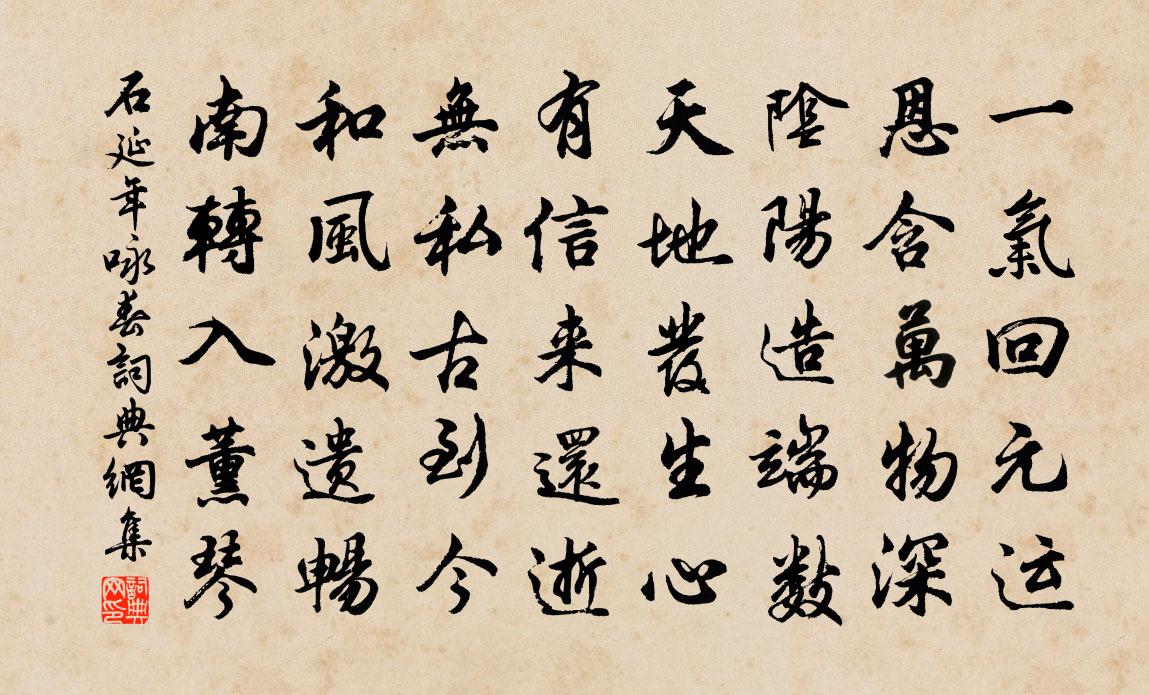 一氣回元运
恩含萬物深
陰陽造端數
天地發生心
有信来還逝
無私古到今
和風激遗暢
南轉入薰琴
石延年咏春詞典網集
詞典网印